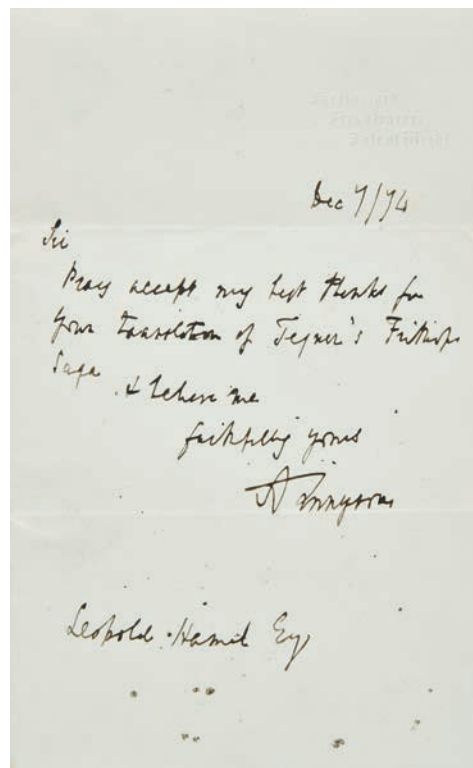 Dec 7/74
Sir
Pray accept my best thanks for
your translation of Tegner's Frithiofs
Saga
& believe me
faithfully yours
A Tennyson
Leopold Hamel Esq